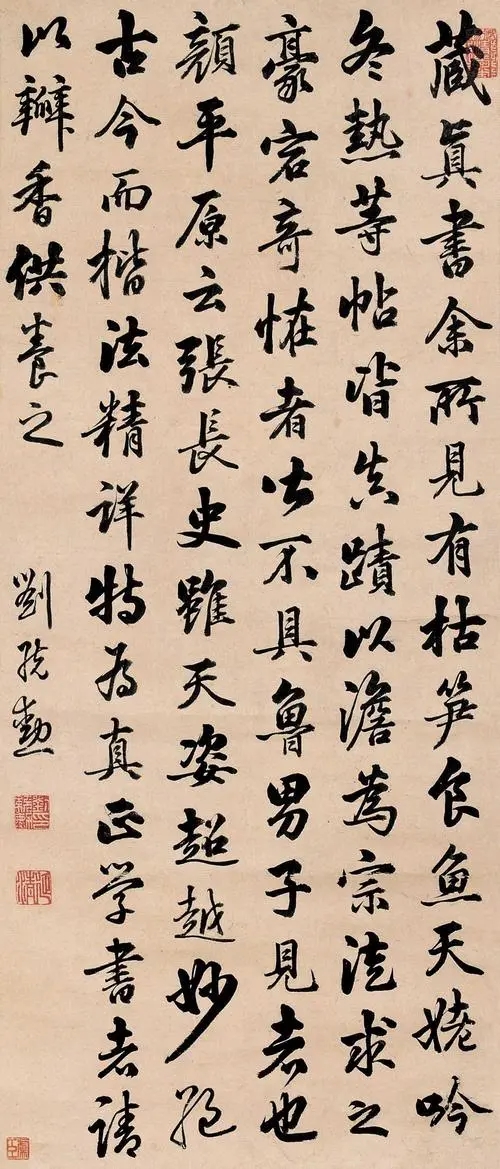 藏真書余所見有枯笋食魚天姥吟
冬熱等帖皆真蹟以澹為宗徒求之
豪宕奇恠者皆不具魯男子見者也
顏平原云張長史雖天姿超越妙絕
古今而楷法精詳特為真正學書者請
以瓣香供養之
劉統勳